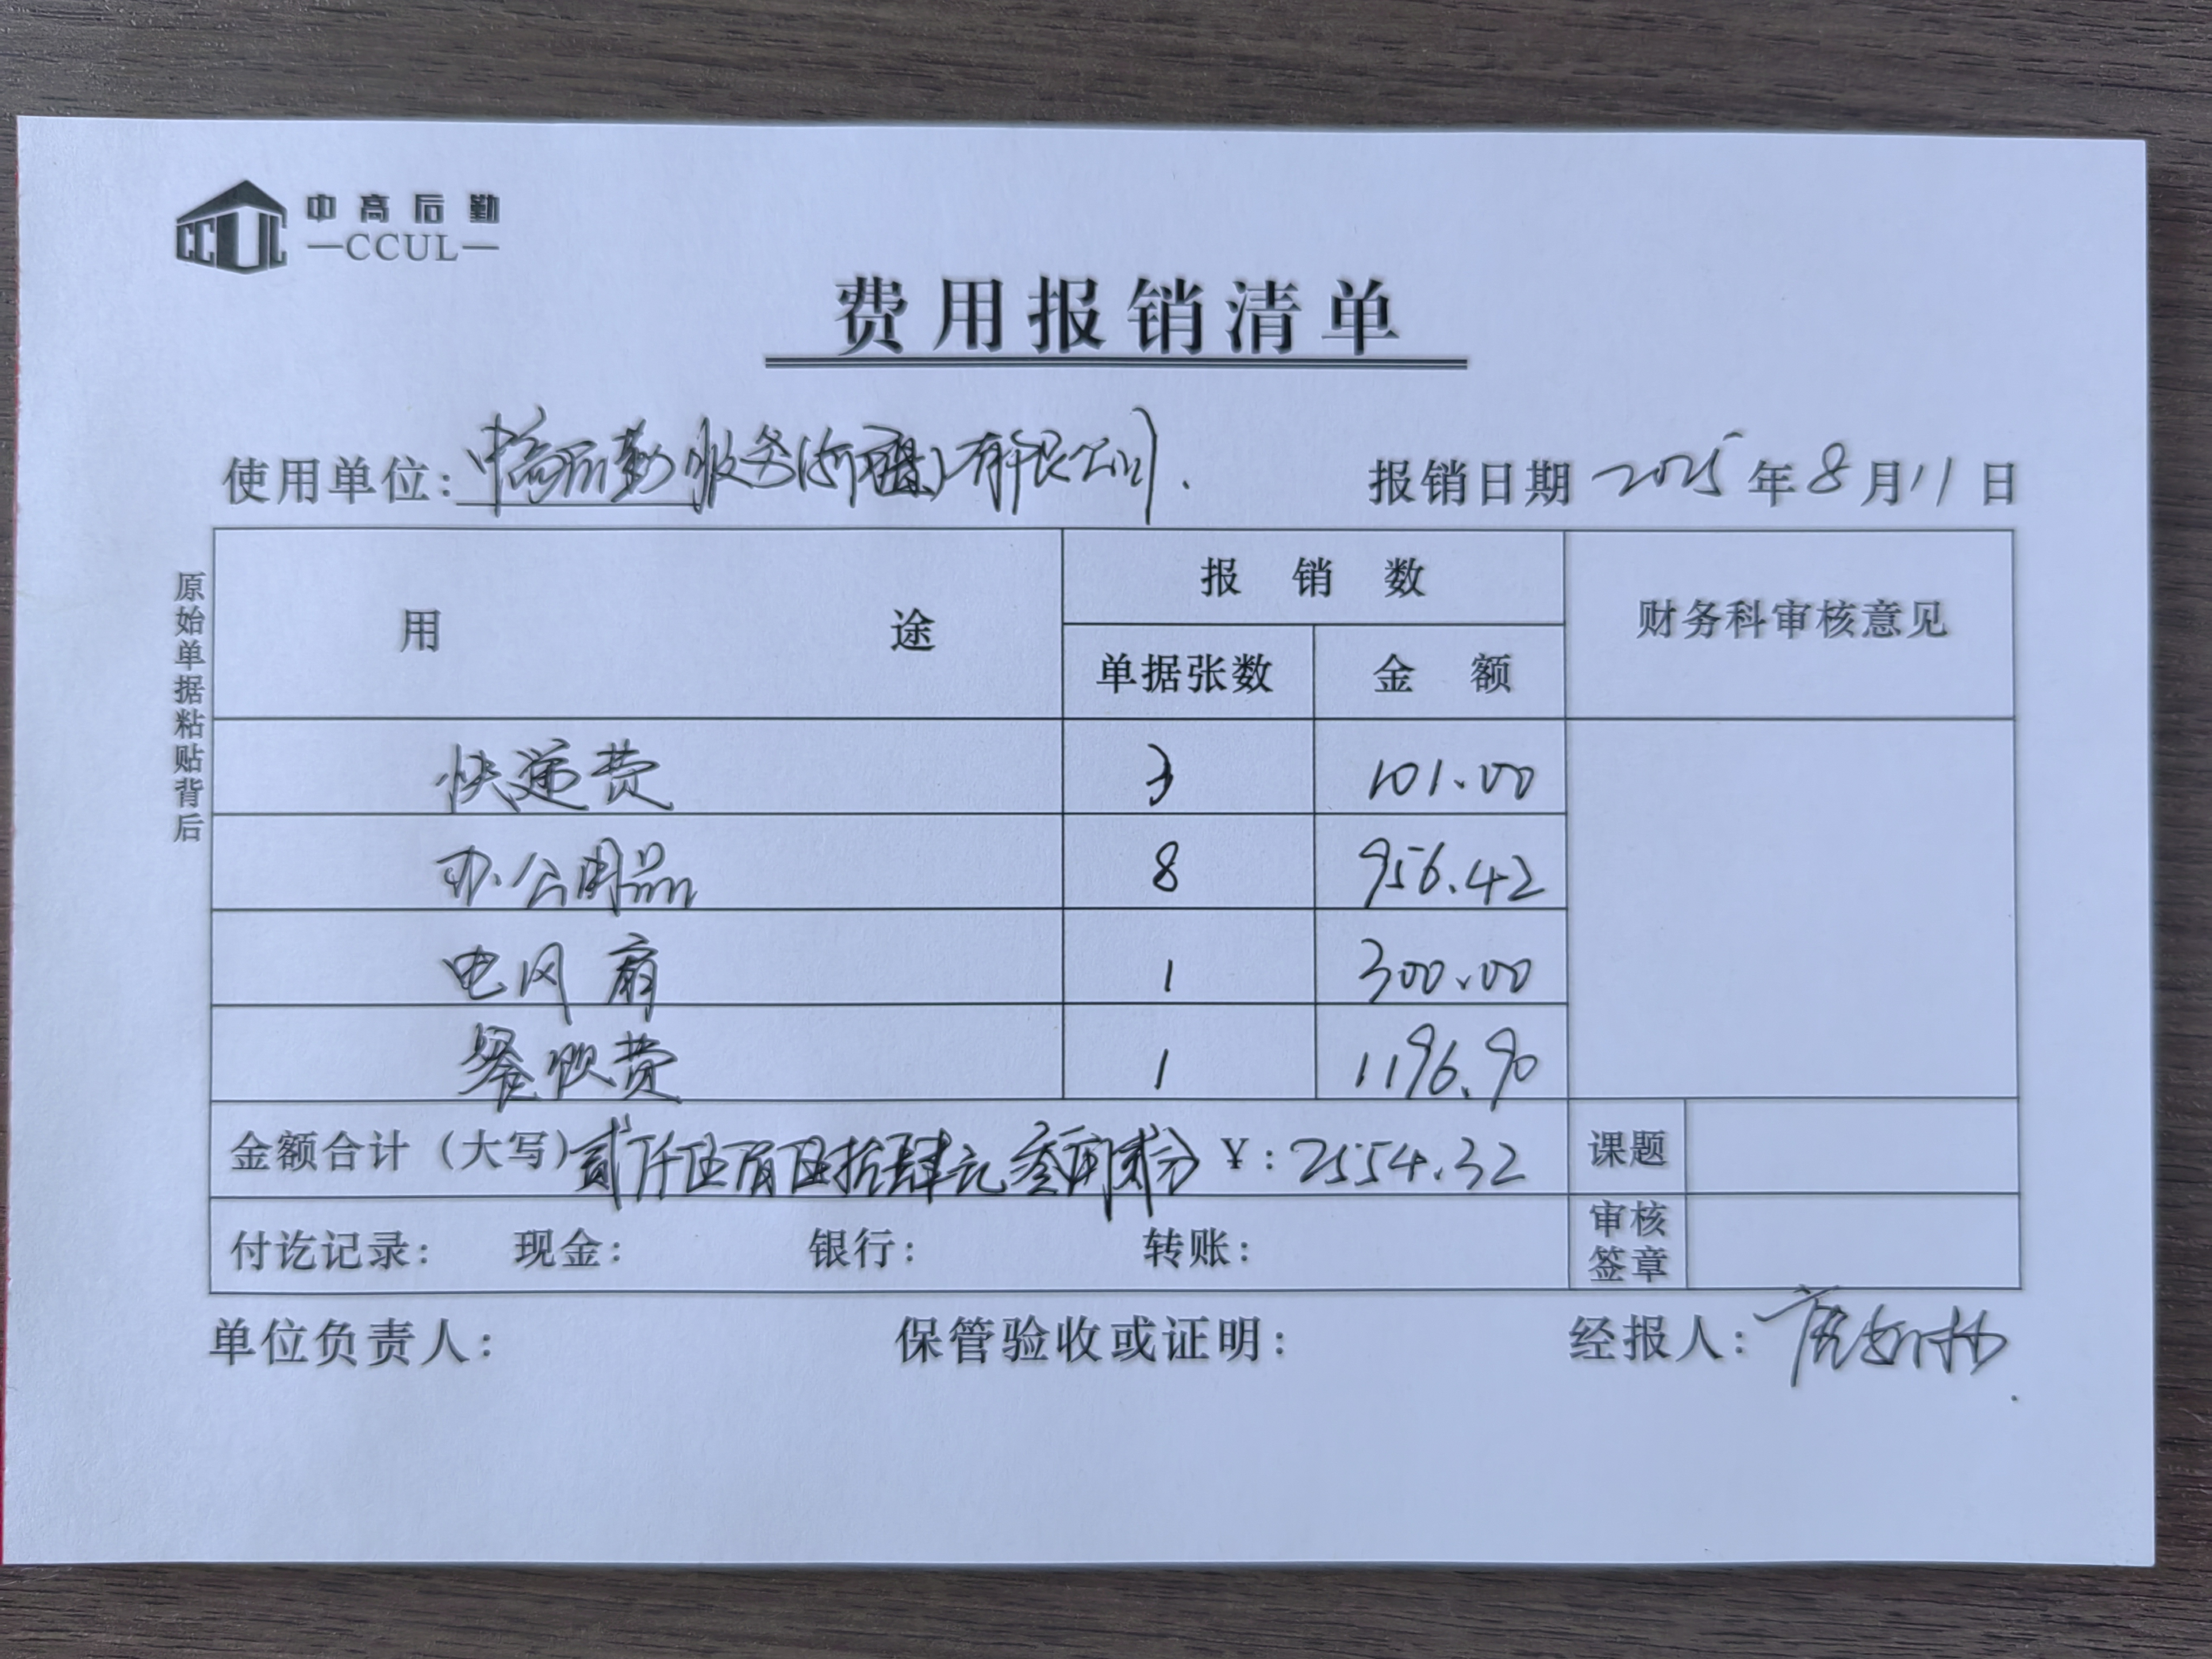 中高后勤
—CCUL—
费用报销清单
使用单位：中高后勤服务有限公司.
报销日期 2025年8月11日
原始单据粘贴背后
用途 报销数 财务科审核意见
单据张数 金额
快递费 3 101.00
办公用品 8 956.42
电风扇 1 300.00
餐饮费 1 1196.90
金额合计（大写）贰仟伍佰伍拾肆元叁角贰分 ￥：2554.32 课题
付讫记录： 现金： 银行： 转账： 审核签章
单位负责人： 保管验收或证明： 经报人：